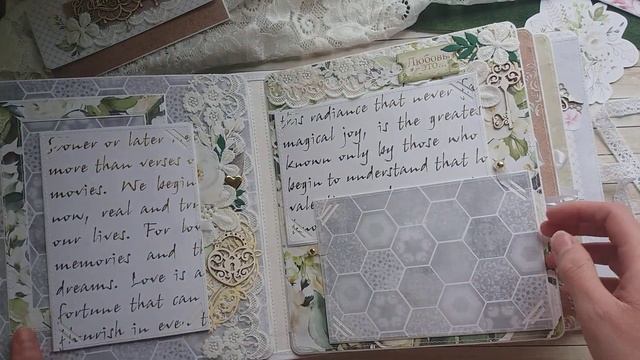 Sooner or later
more than verses o
movies. We begin
now, real and tru
our lives. For lov
memories and th
dreams. Love is a
fortune that can
flourish in even t
Любовь
это...
this radiance that never
magical joy, is the greates
known only by those who
begin to understand that lo
vale